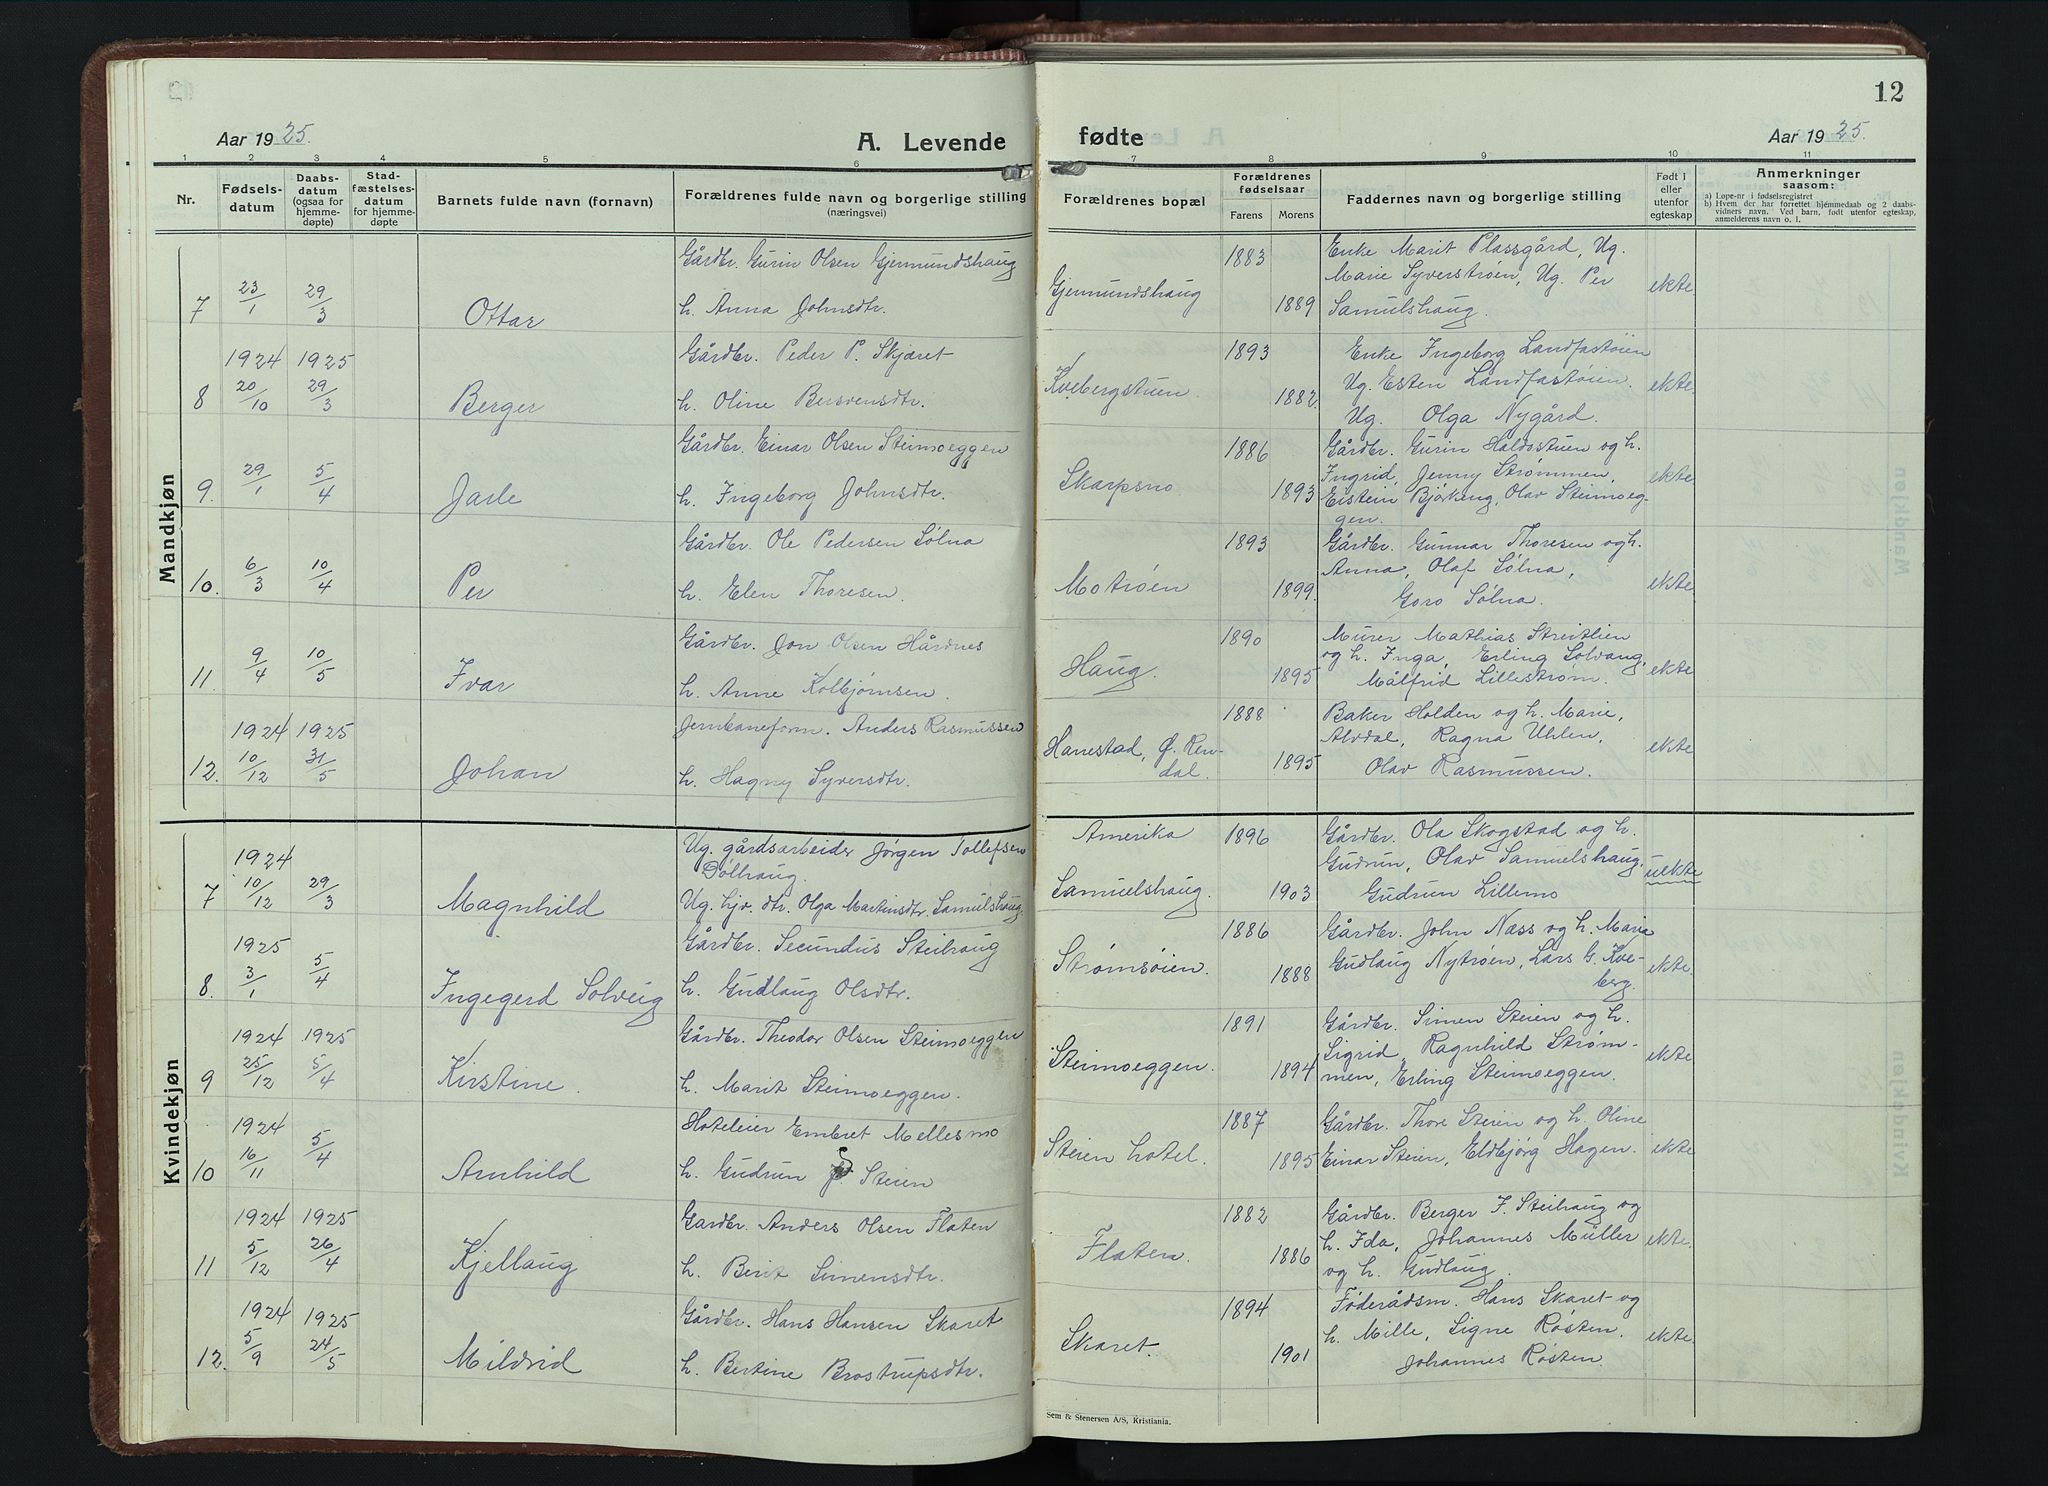 12
Aar 1925.
A. Levende
fødte
Aar 1925.
1 2 3 4 5 6 7 8 9 10 11
Nr.
Fødsels-
datum
Daabs-
datum
(ogsaa for
hjemme-
døpte)
Stad-
fæstelses-
datum
for hjemme-
døpte
Barnets fulde navn (fornavn)
Forældrenes fulde navn og borgerlige stilling
(næringsvei)
Forældrenes bopæl
Forældrenes
fødselsaar
Farens
Morens
Faddernes navn og borgerlige stilling
Født i
eller
utenfor
egteskap
Anmerkninger
saasom:
a) Løpe-nr i fødselsregistret
b) Hvem der har forrettet hjemmedaab og 2 daabs-
vidners navn. Ved barn, født utenfor egteskap,
anmelderens navn o. l.
Mandkjøn
7 23/1 29/3 Ottar
Gårdbr. Gurin Olsen Gjermundshaug
h. Anna Johnsdtr.
Gjermundshaug
1883
1889
Enke Marit Plassgård, Ug.
Marie Syverstrøen, Ug. Per
Samulshaug.
ekte
1924 1925
8 20/10 29/3 Berger
Gårdbr. Peder P. Skjæret
h. Oline Bersvensdtr.
Kvebergstuen
1893
1882.
Enke Ingeborg Landfastøien
Ug. Esten Landfastøien.
Ug. Olga Nygård.
ekte
9. 29/1 5/4 Jarle
Gårdbr. Einar Olsen Steimoeggen
h. Ingeborg Johnsdtr.
Skarpsno.
1886
1893
Gårdbr. Gurin Haldostuen og h.
Ingrid, Jenny Strømmen,
Eistein Bjørkeng, Olav Steimoeg-
gen.
ekte
10. 6/3 10/4 Per
Gårdbr. Ole Pedersen Sølna
h. Elen Thoresen.
Motrøen
1893
1899.
Gårdbr. Gunnar Thoresen og h.
Anna, Olaf Sølna,
Goro Sølna.
ekte
11. 9/4 10/5 Ivar
Gårdbr. Jon Olsen Hårdnes
h. Anne Kolbjørnsen.
Haug.
1890
1895
Murer Mathias Streitlien
og h. Inga, Erling Solvang,
Målfrid Lillestrøm.
ekte
1924 1925
12. 10/12 31/5 Johan
Jernbaneform. Anders Rasmussen
h. Hagny Syversdtr.
Hanestad, Ø. Ren-
dal.
1888
1895
Baker Holden og h. Marie,
Alvdal, Ragna Uhlen,
Olav Rasmussen.
ekte
Kvindekjøn
1924
7 10/12 29/3 Magnhild
Ug. gårdsarbeider Jørgen Tollefsen
Dølhaug.
Ug. hjv. dtr. Olga Martinsdtr. Samulshaug.
Amerika
Samuelshaug.
1896
1903
Gårdbr. Ola Skogstad og h.
Gudrun, Olav Samuelshaug,
Gudrun Lillemo
uekte
1925
8. 3/1 5/4 Ingegerd Solveig
Gårdbr. Secundus Steihaug
h. Gudlaug Olsdtr.
Strømsøien.
1886
1888
Gårdbr. John Næss og h. Marie
Gudlaug Nytrøen, Lars G. Kve-
berg.
ekte.
1924 1925
9 25/12 5/4 Kirstine.
Gårdbr. Theodor Olsen Steimoeggen
h. Marit Steimoeggen.
Steimoeggen.
1891
1894
Gårdbr. Simen Steien og h.
Sigrid, Ragnhild Strøm-
men, Erling Steimoeggen.
ekte
1924
10 16/11 5/4 Arnhild
Hoteleier Embret Mellesmo
h. Gudrun S. Steien
Steien hotel.
1887
1895
Gårdbr. Thore Steien og h. Oline
Einar Steien, Eldbjørg Hagen.
ekte
1924 1925
11 5/12 26/4 Kjellaug
Gardbr. Anders Olsen Flaten
h. Berit Simensdtr.
Flaten.
1882
1886
Gårdbr. Berger F. Steihaug og
h. Ida, Johannes Müller
og h. Gudlaug.
ekte.
1924 1925
12. 5/9 24/5 Mildrid
Gårdbr. Hans Hansen Skaret
h. Bertine Brostrupsdtr.
Skaret.
1894
1901
Føderådsm. Hans Skaret og
h. Mille, Signe Røsten,
Johannes Røsten.
ekte
Sem & Stenersen A/S, Kristiania.